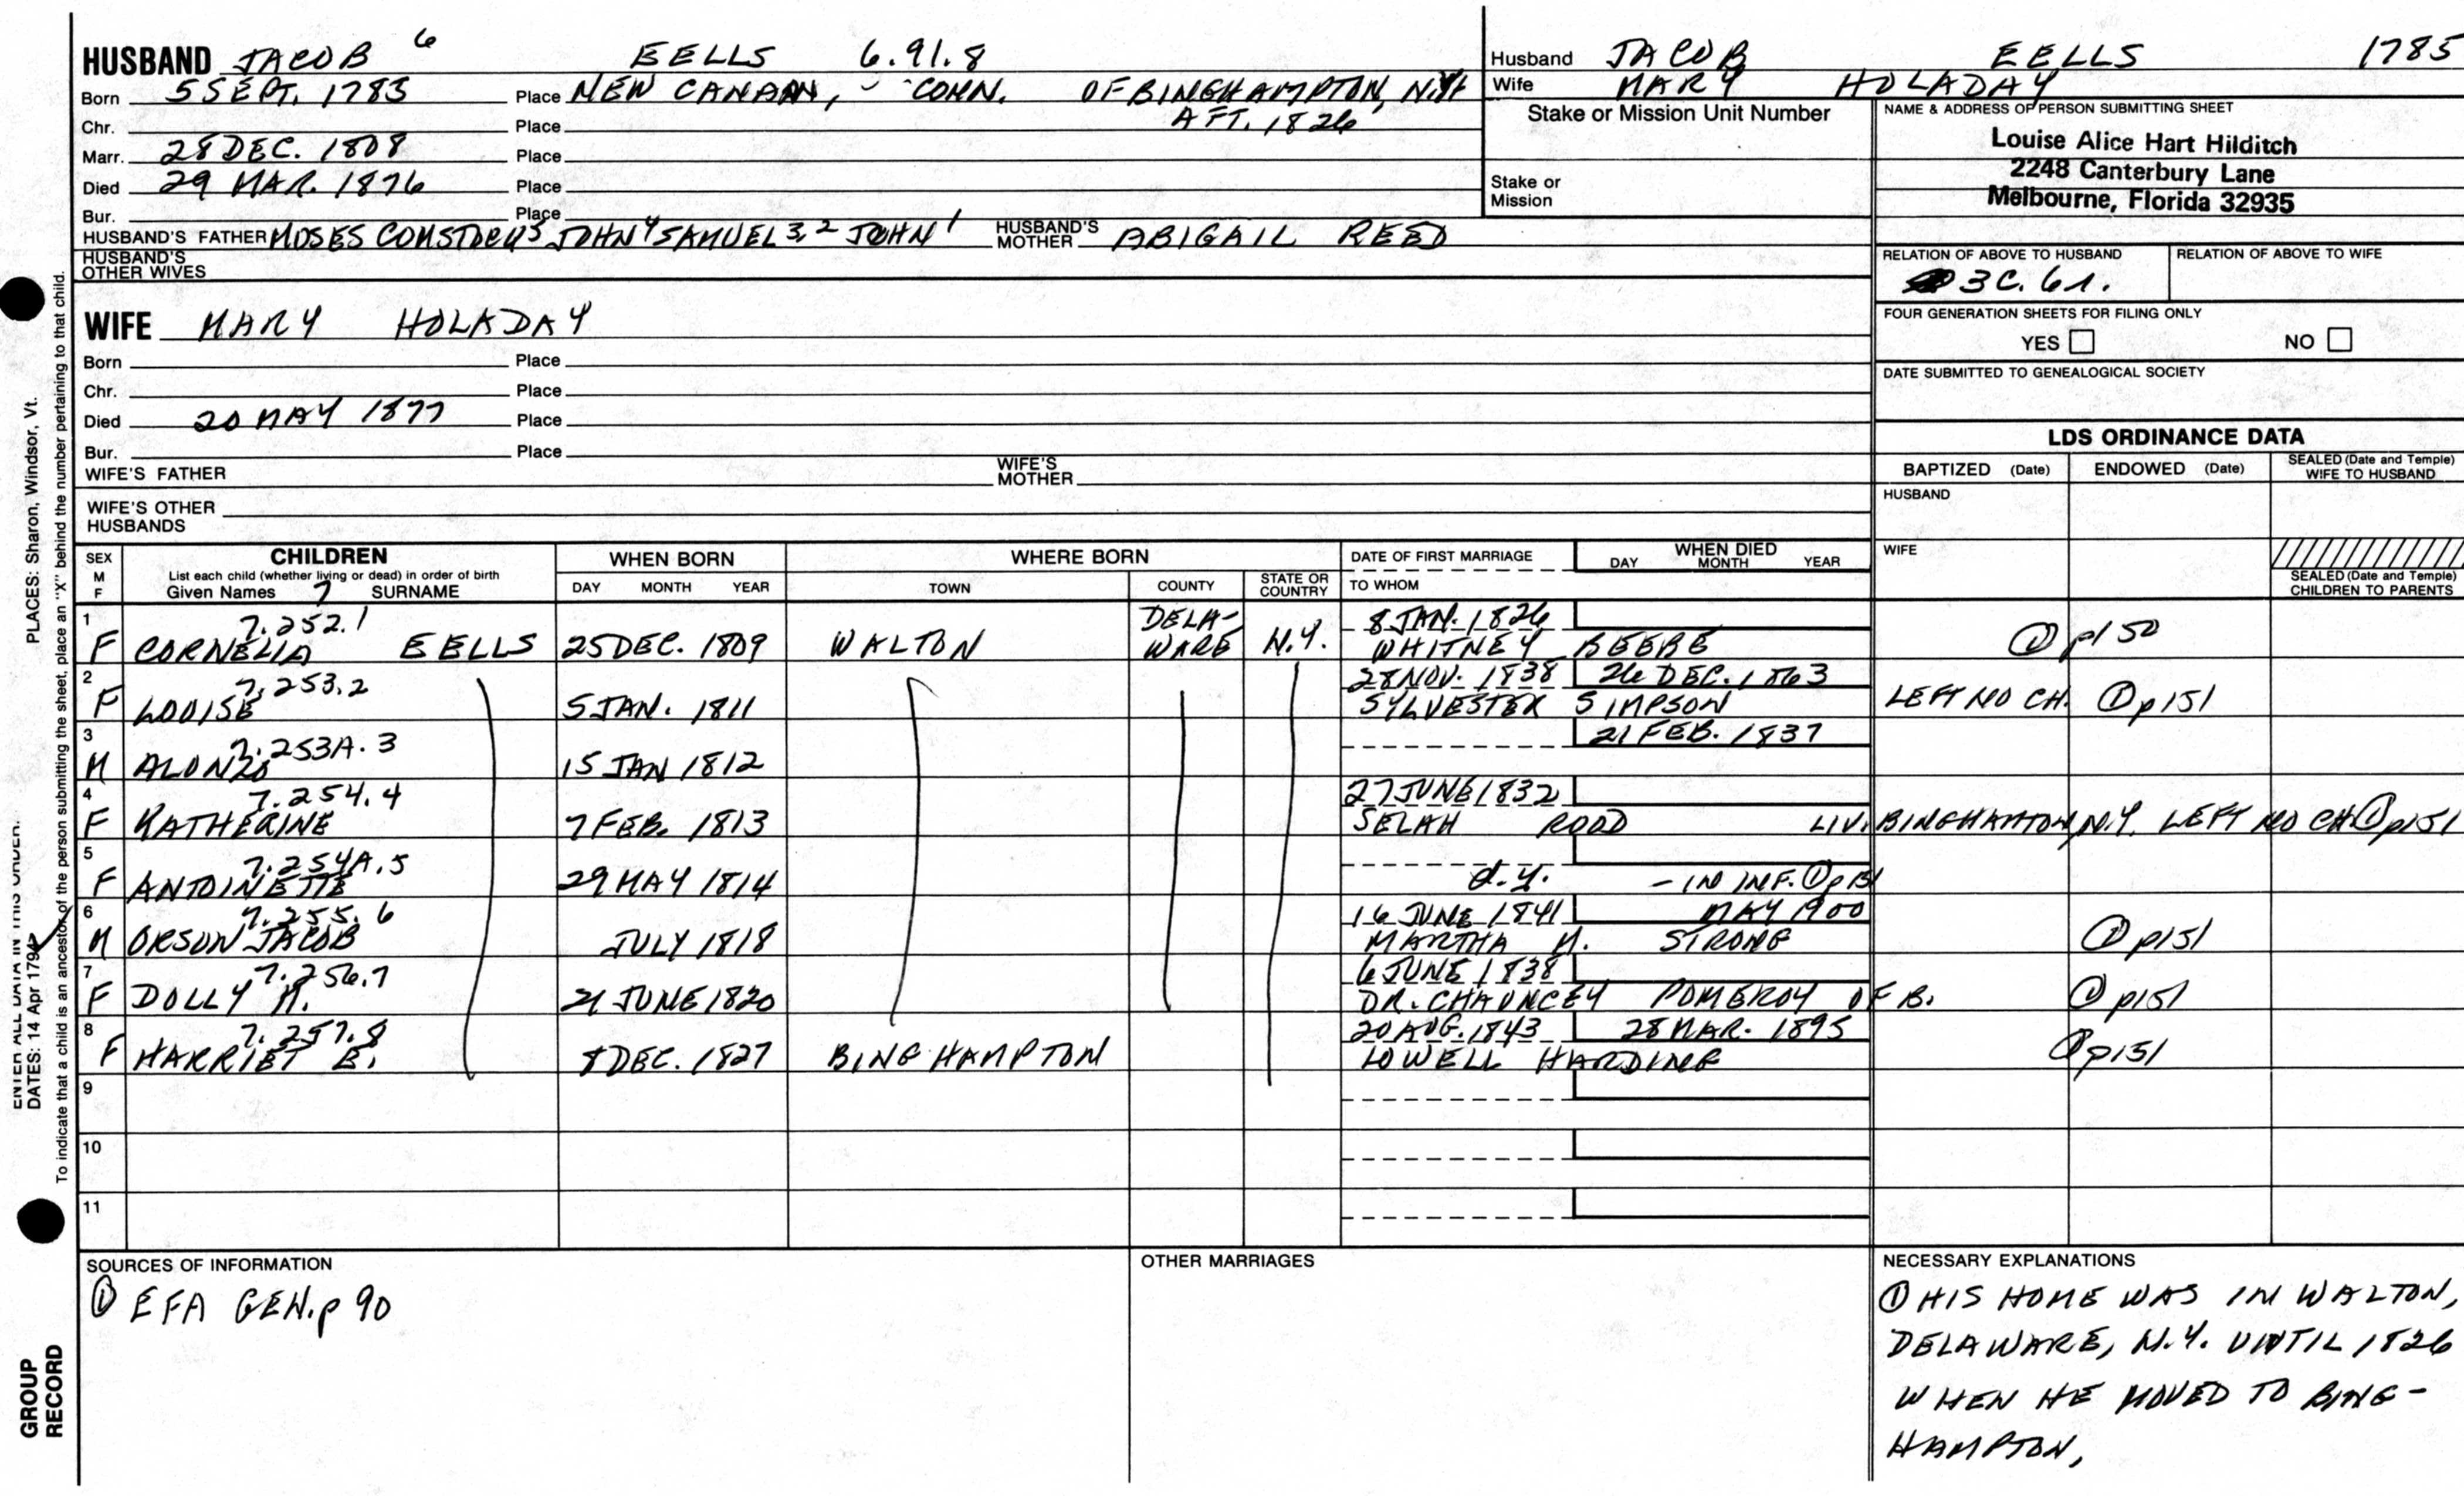 HUSBAND JACOB 6 EELLS 6.91.8
Born 5 SEPT. 1785 Place NEW CANAAN, CONN. OF BINGHAMPTON, N.Y.
Chr. Place AFT. 1826
Marr. 28 DEC. 1808 Place
Died 29 MAR. 1876 Place
Bur. Place
HUSBAND'S FATHER MOSES COMSTOCK 5 JOHN 4 SAMUEL 3,2 JOHN 1 HUSBAND'S MOTHER ABIGAIL REED
HUSBAND'S OTHER WIVES
Husband JACOB EELLS 1785
Wife MARY HOLADAY
Stake or Mission Unit Number
Stake or Mission
NAME & ADDRESS OF PERSON SUBMITTING SHEET
Louise Alice Hart Hilditch
2248 Canterbury Lane
Melbourne, Florida 32935
RELATION OF ABOVE TO HUSBAND RELATION OF ABOVE TO WIFE
3C. 6r.
FOUR GENERATION SHEETS FOR FILING ONLY
YES NO
DATE SUBMITTED TO GENEALOGICAL SOCIETY
WIFE MARY HOLADAY
Born Place
Chr. Place
Died 20 MAY 1877 Place
Bur. Place
WIFE'S FATHER WIFE'S MOTHER
WIFE'S OTHER HUSBANDS
LDS ORDINANCE DATA
BAPTIZED (Date) ENDOWED (Date) SEALED (Date and Temple) WIFE TO HUSBAND
HUSBAND
WIFE
SEALED (Date and Temple) CHILDREN TO PARENTS
SEX M F
CHILDREN
List each child (whether living or dead) in order of birth
Given Names 7 SURNAME
WHEN BORN
DAY MONTH YEAR
WHERE BORN
TOWN COUNTY STATE OR COUNTRY
DATE OF FIRST MARRIAGE
TO WHOM
WHEN DIED
DAY MONTH YEAR
1 7.252.1 DELA- 8 JAN. 1826
F CORNELIA EELLS 25 DEC. 1809 WALTON WARE N.Y. WHITNEY BEEBE ① p150
2 7.253.2 28 NOV. 1838 26 DEC. 1863
F LOUISE 5 JAN. 1811 SYLVESTER SIMPSON LEFT NO CH. ① p151
3 7.253A.3 21 FEB. 1837
M ALONZO 15 JAN 1812
4 7.254.4 27 JUNE 1832
F KATHERINE 7 FEB. 1813 SELAH ROOD LIV. BINGHAMTON, N.Y. LEFT NO CH ① p151
5 7.254A.5
F ANTOINETTE 29 MAY 1814 d.y. - IN INF. ① p151
6 7.255.6 16 JUNE 1841 MAY 1900
M ORSON JACOB JULY 1818 MARTHA M. STRONG ① p151
7 7.256.7 6 JUNE 1838
F DOLLY M. 21 JUNE 1820 DR. CHAUNCEY POMEROY OF B. ① p151
8 7.257.8 20 AUG. 1843 28 MAR. 1895
F HARRIET E. 8 DEC. 1827 BINGHAMPTON LOWELL HARDING ① p151
9
10
11
SOURCES OF INFORMATION
① EFA GEN. p 90
OTHER MARRIAGES
NECESSARY EXPLANATIONS
① HIS HOME WAS IN WALTON,
DELAWARE, N.Y. UNTIL 1826
WHEN HE MOVED TO BING-
HAMPTON,
PLACES: Sharon, Windsor, Vt.
ENTER ALL DATA IN THIS ORDER:
DATES: 14 Apr 1794
To indicate that a child is an ancestor of the person submitting the sheet, place an "X" behind the number pertaining to that child.
GROUP RECORD